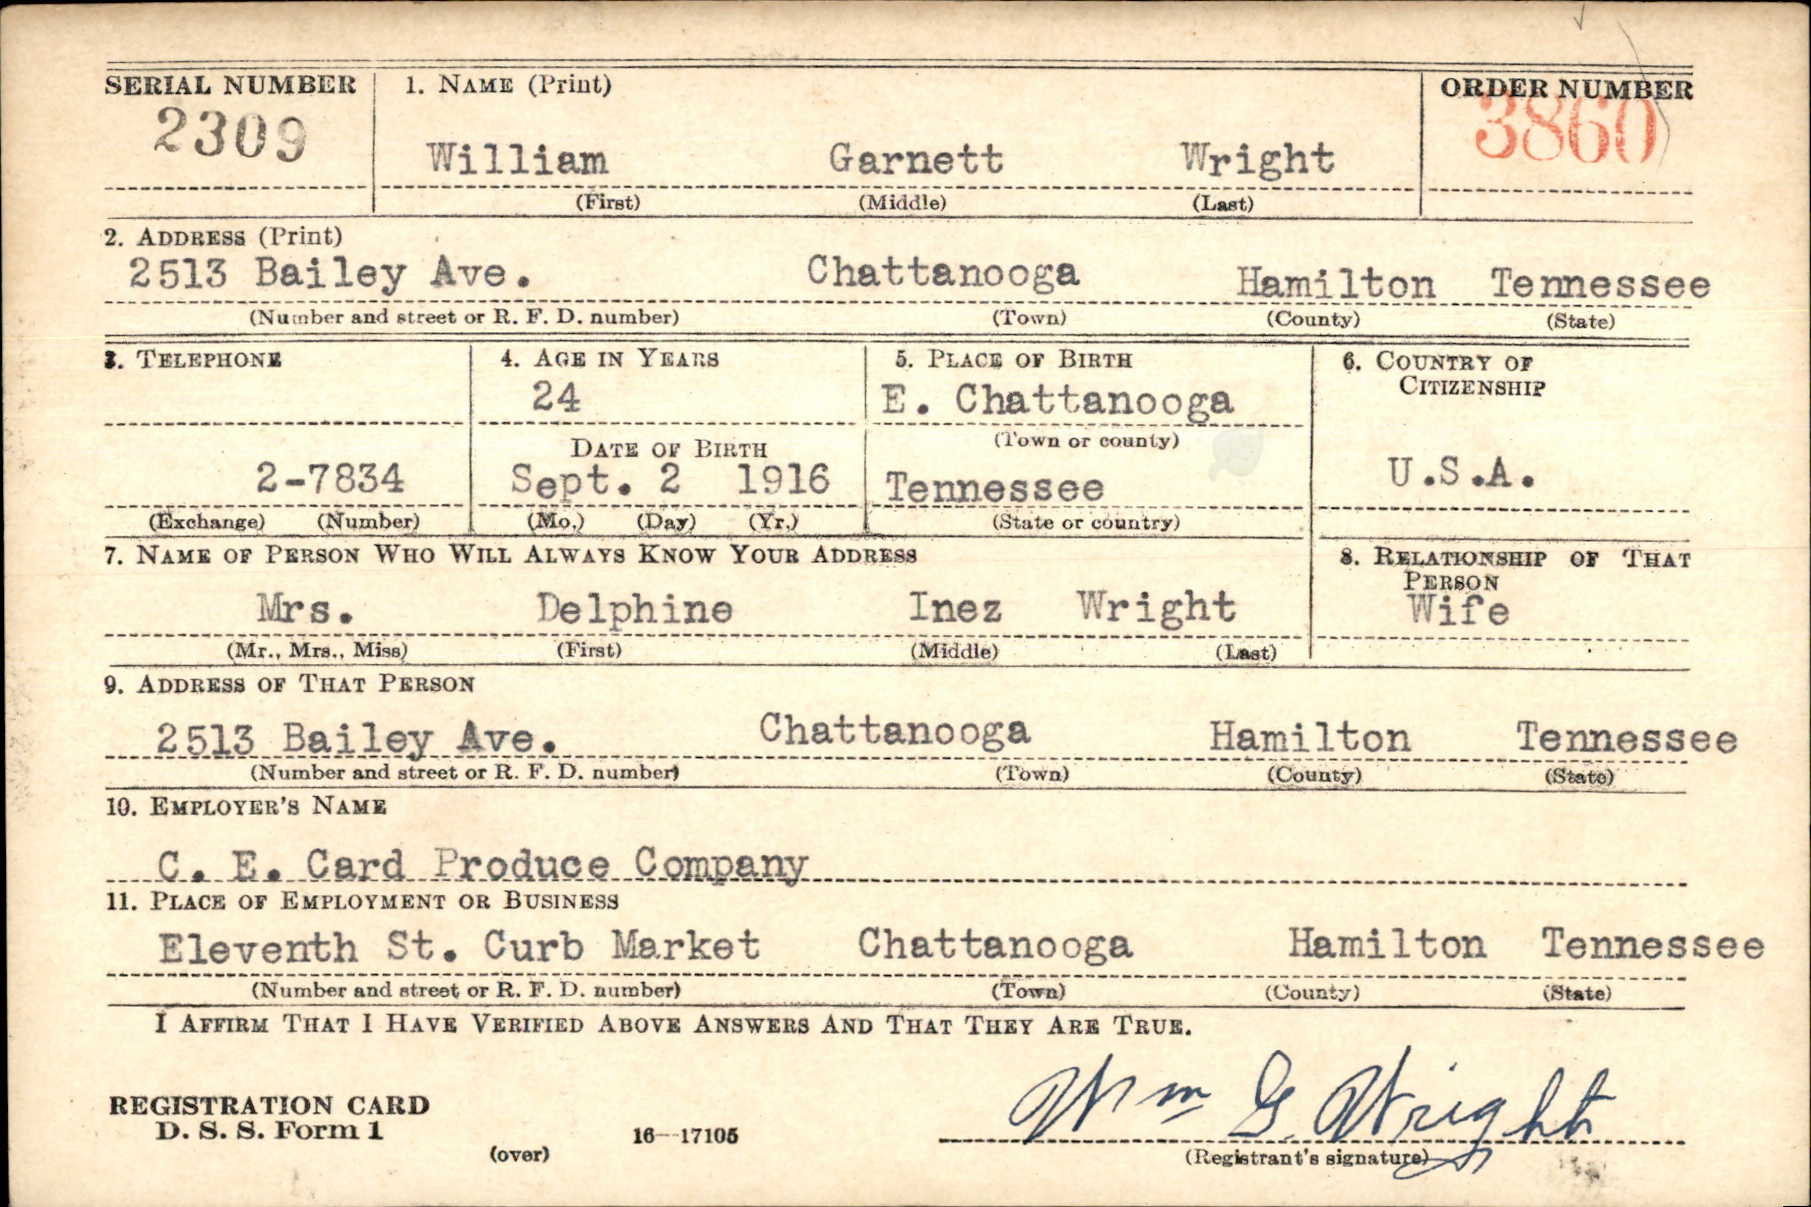 SERIAL NUMBER 1. NAME (Print) ORDER NUMBER
2309 3860
William Garnett Wright
(First) (Middle) (Last)
2. ADDRESS (Print)
2513 Bailey Ave. Chattanooga Hamilton Tennessee
(Number and street or R. F. D. number) (Town) (County) (State)
3. TELEPHONE 4. AGE IN YEARS 5. PLACE OF BIRTH 6. COUNTRY OF
CITIZENSHIP
24 E. Chattanooga
DATE OF BIRTH (Town or county)
2-7834 Sept. 2 1916 Tennessee U.S.A.
(Exchange) (Number) (Mo.) (Day) (Yr.) (State or country)
7. NAME OF PERSON WHO WILL ALWAYS KNOW YOUR ADDRESS 8. RELATIONSHIP OF THAT
PERSON
Mrs. Delphine Inez Wright Wife
(Mr., Mrs., Miss) (First) (Middle) (Last)
9. ADDRESS OF THAT PERSON
2513 Bailey Ave. Chattanooga Hamilton Tennessee
(Number and street or R. F. D. number) (Town) (County) (State)
10. EMPLOYER'S NAME
C. E. Card Produce Company
11. PLACE OF EMPLOYMENT OR BUSINESS
Eleventh St. Curb Market Chattanooga Hamilton Tennessee
(Number and street or R. F. D. number) (Town) (County) (State)
I AFFIRM THAT I HAVE VERIFIED ABOVE ANSWERS AND THAT THEY ARE TRUE.
Wm G. Wright
REGISTRATION CARD
D. S. S. Form 1 16—17105
(over) (Registrant's signature)